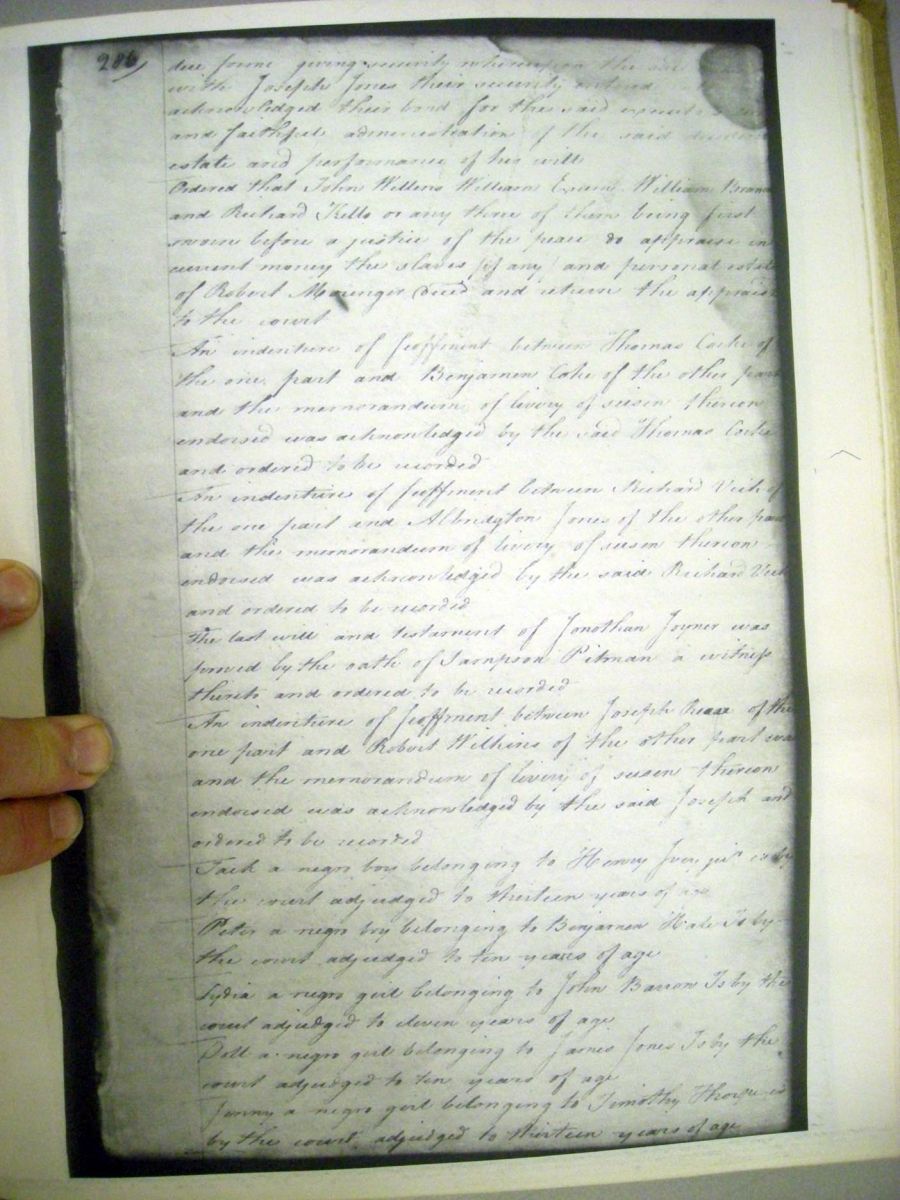 286
due form giving security whereupon the
with Joseph Jones their security entered
acknowledged their bond for the said
and faithful administration of the said
estate and performance of her will
Ordered that John William
and Richard Kello or any three of them being first
sworn before a justice of the peace do appraise in
current money the slaves if any and personal estate
of Robert and return the
to the court
An indenture of feoffment between Thomas Cocke of
the one part and Benjamen of the other part
and the memorandum of livery of seisen thereon
endorsed was acknowledged by the said Thomas Cocke
and ordered to be recorded
An indenture of feoffment between Richard of
the one part and Albridgton Jones of the other part
and the memorandum of livery of seisen thereon
endorsed was acknowledged by the said Richard
and ordered to be recorded
The last will and testament of Jonothan Joyner was
proved by the oath of Sampson Pitman a witness
thereto and ordered to be recorded
An indenture of feoffment between Joseph of the
one part and Robert Wilkins of the other part
and the memorandum of livery of seisen thereon
endorsed was acknowledged by the said Joseph and
ordered to be recorded
Jack a negro boy belonging to Henry
the court adjudged to thirteen years of age
Peter a negro boy belonging to Benjamen Is by
the court adjudged to ten years of age
Lydia a negro girl belonging to John Barron Is by the
court adjudged to eleven years of age
Doll a negro girl belonging to James Jones Is by the
court adjudged to ten years of age
Jenny a negro girl belonging to Timothy Thorpe is
by the court adjudged to thirteen years of age